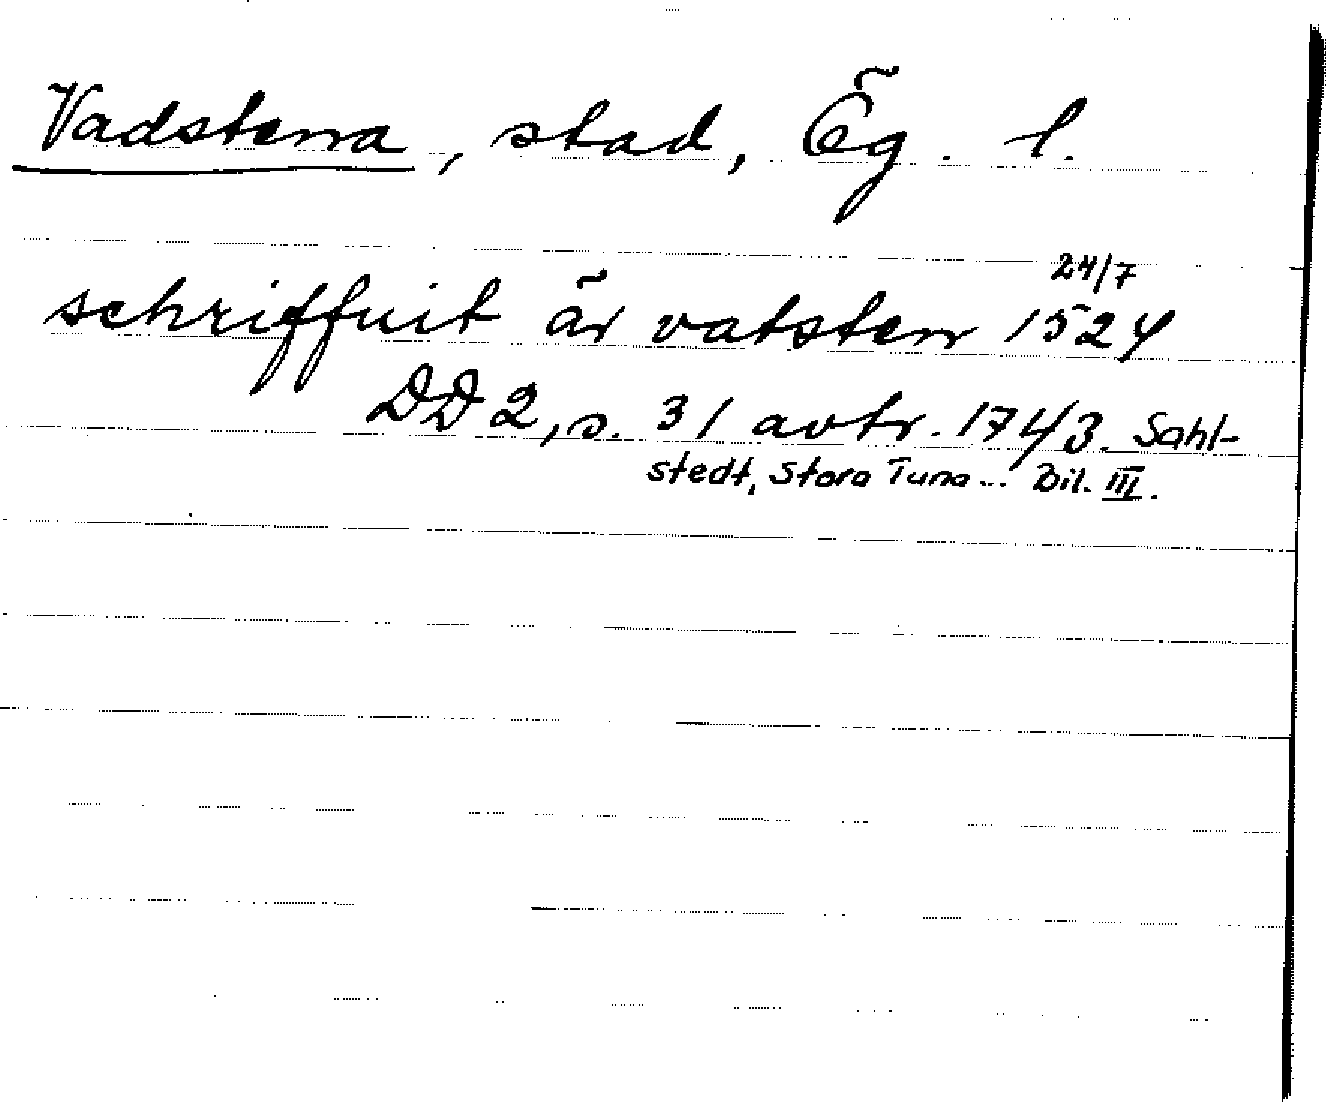 Vadstena, stad, Ög. l.
24/7
schriffuit är vatsten 1524
DD 2, s. 31 avtr. 1743. Sahl-
stedt, Stora Tuna... Bil. III.